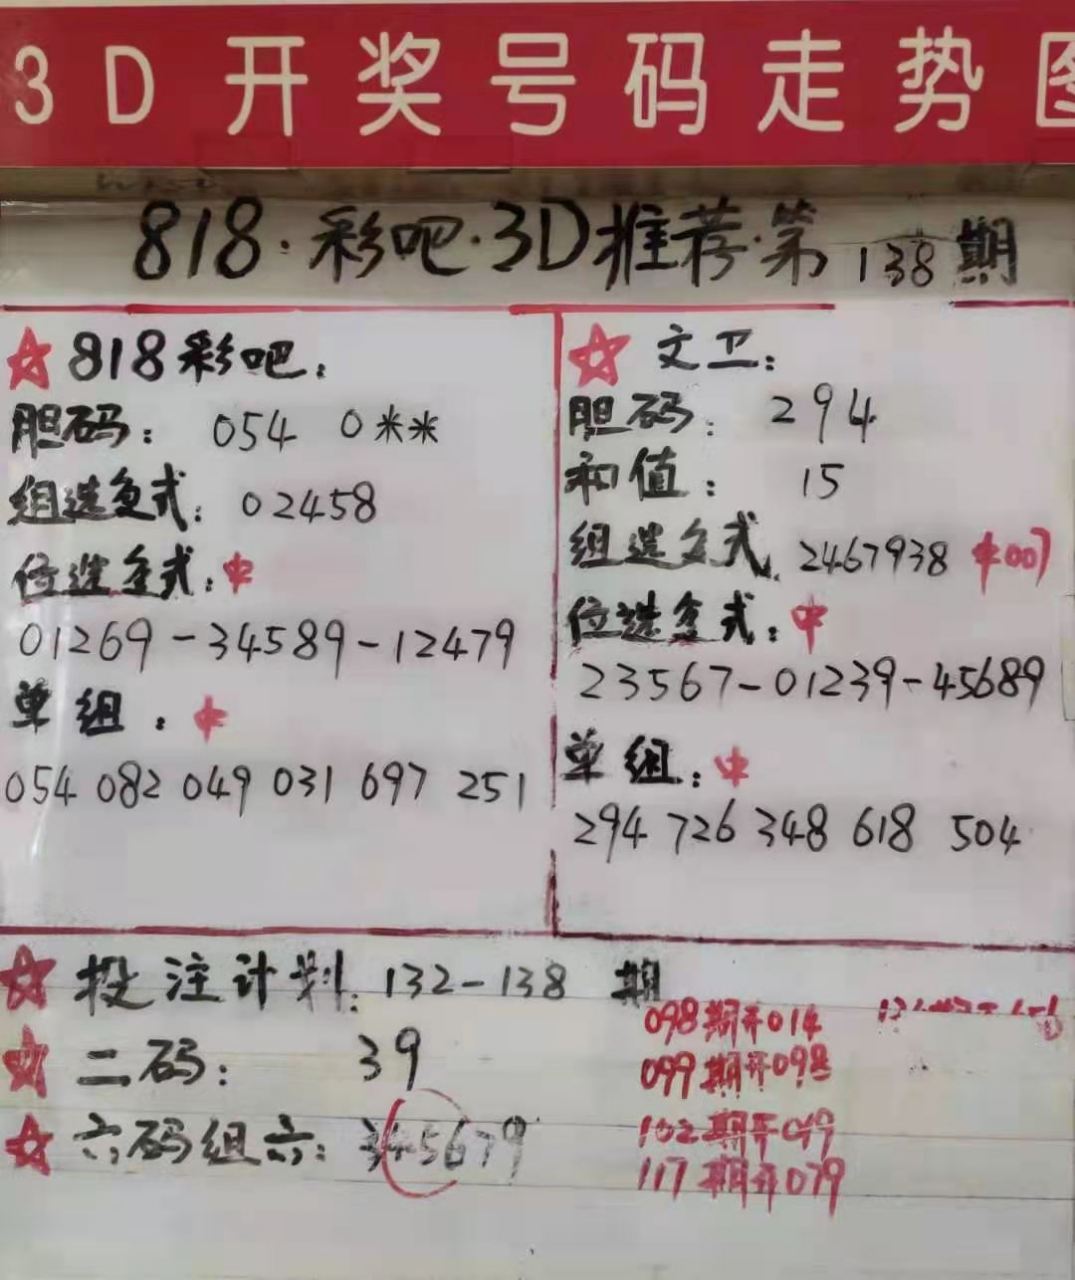 3D开奖号码走势图
818·彩吧·3D推荐·第138期
818彩吧:
胆码: 054 0**
组选复式: 02458
位选复式:中
01269-34589-12479
单组:中
054 082 049 031 697 251
文卫:
胆码: 294
和值: 15
组选复式 2467938 中007
位选复式:中
23567-01239-45689
单组:中
294 726 348 618 504
投注计划: 132-138 期
二码: 39
六码组六: 345679
098期开014
099期开098
102期开049
117期开079